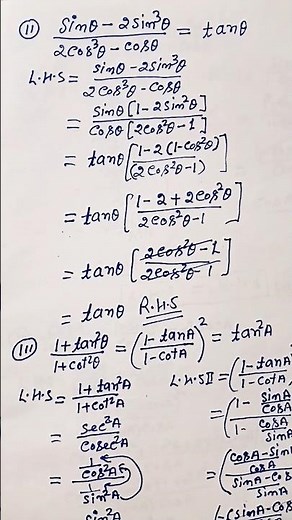 (ii) (sinθ - 2sin³θ)/(2cos³θ - cosθ) = tanθ
L.H.S = (sinθ - 2sin³θ)/(2cos³θ - cosθ)
= sinθ[1 - 2sin²θ]/cosθ[2cos²θ - 1]
= tanθ[(1 - 2(1 - cos²θ))/(2cos²θ - 1)]
= tanθ[(1 - 2 + 2cos²θ)/(2cos²θ - 1)]
= tanθ[(2cos²θ - 1)/(2cos²θ - 1)]
= tanθ R.H.S
(iii) (1 + tan²θ)/(1 + cot²θ) = ((1 - tanA)/(1 - cotA))² = tan²A
L.H.S = (1 + tan²A)/(1 + cot²A)
= sec²A/cosec²A
= (1/cos²A)/(1/sin²A)
sin²A
L.H.S II = (1 - tanA)/(1 - cotA)
= (1 - sinA/cosA)/(1 - cosA/sinA)
= ((cosA - sinA)/cosA)/((sinA - cosA)/sinA)
(sinA - cos